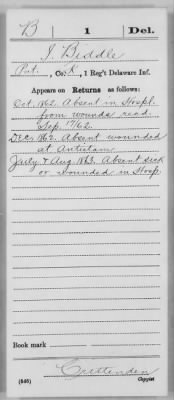 B | 1 | Del.
J. Biddle
Pvt., Co. K, 1 Reg't Delaware Inf.
Appears on Returns as follows:
Oct. 1862. Absent in Hospl.
from wounds recd.
Sep. 17/62.
Dec. 1862. Absent wounded
at Antietam
July & Aug. 1863. Absent sick
or wounded in Hosp.
Book mark
Crittenden
(546) Copyist.